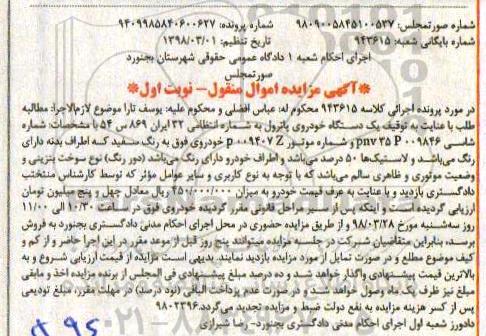 شماره صورتمجلس: ۹۸۰۹۰۰۵۸۴۵۱۰۰۵۳۷ شماره پرونده: ۹۴۰۹۹۸۵۸۴۰۶۰۰۶۲۷
شماره بایگانی شعبه: ۹۴۳۶۱۵ تاریخ تنظیم: ۱۳۹۸/۰۳/۰۱
اجرای احکام شعبه ۱ دادگاه عمومی حقوقی شهرستان بجنورد
صورتمجلس
*آگهی مزایده اموال منقول- نوبت اول*
در مورد پرونده اجرائی کلاسه ۹۴۳۶۱۵ محکوم له: عباس افضلی و محکوم علیه: یوسف تارا موضوع لازم‌الاجرا: مطالبه
طلب با عنایت به توقیف یک دستگاه خودروی پاترول به شماره انتظامی ۳۲ ایران ۸۶۹ س ۵۴ با مشخصات: شماره
شاسی pnv ۳۵ P ۰۰۹۸۴۶ و شماره موتور p ۰۰۹۴۰۷ Z خودروی فوق به رنگ سفید که اطراف بدنه دارای
رنگ می‌باشد و لاستیک‌ها ۵۰ درصد می‌باشد و اطراف خودرو دارای رنگ می‌باشد (دور رنگ) نوع سوخت بنزینی و
وضعیت موتوری و ظاهری سالم می‌باشد که با توجه به نوع کاربری و سایر عوامل مؤثر که توسط کارشناس منتخب
دادگستری بازدید و با عنایت به عرف قیمت خودرو به میزان ۴۵۰/۰۰۰/۰۰۰ ریال معادل چهل و پنج میلیون تومان
ارزیابی گردیده است و اینکه پس از سیر مراحل قانونی مقرر گردیده خودروی فوق در ساعت ۱۰/۳۰ الی ۱۱/۰۰
روز سه‌شنبه مورخ ۹۸/۰۳/۲۸ و از طریق مزایده حضوری در محل اجرای احکام مدنی دادگستری بجنورد به فروش
برسد، بنابراین متقاضیان شرکت در جلسه مزایده میتوانند پنج روز قبل از موعد مقرر در این اجرا حاضر و از کم و
کیف موضوع مطلع و در صورت تمایل از مورد مزایده بازدید نمایند. بدیهی است مزایده از قیمت ارزیابی شروع و به
بالاترین قیمت پیشنهادی واگذار خواهد شد و ده درصد مبلغ پیشنهادی فی المجلس از برنده مزایده اخذ و مابقی
مبلغ نیز ظرف یک ماه وصول خواهد شد و در صورت عدم پرداخت الباقی (نود درصد) در مهلت مقرر، مبلغ تودیعی
پس از کسر هزینه مزایده به نفع دولت ضبط و مزایده تجدید می‌گردد. ۹۸۰۲۳۹۶
دادورز شعبه اول اجرای احکام مدنی دادگستری بجنورد- رضا شیرازی